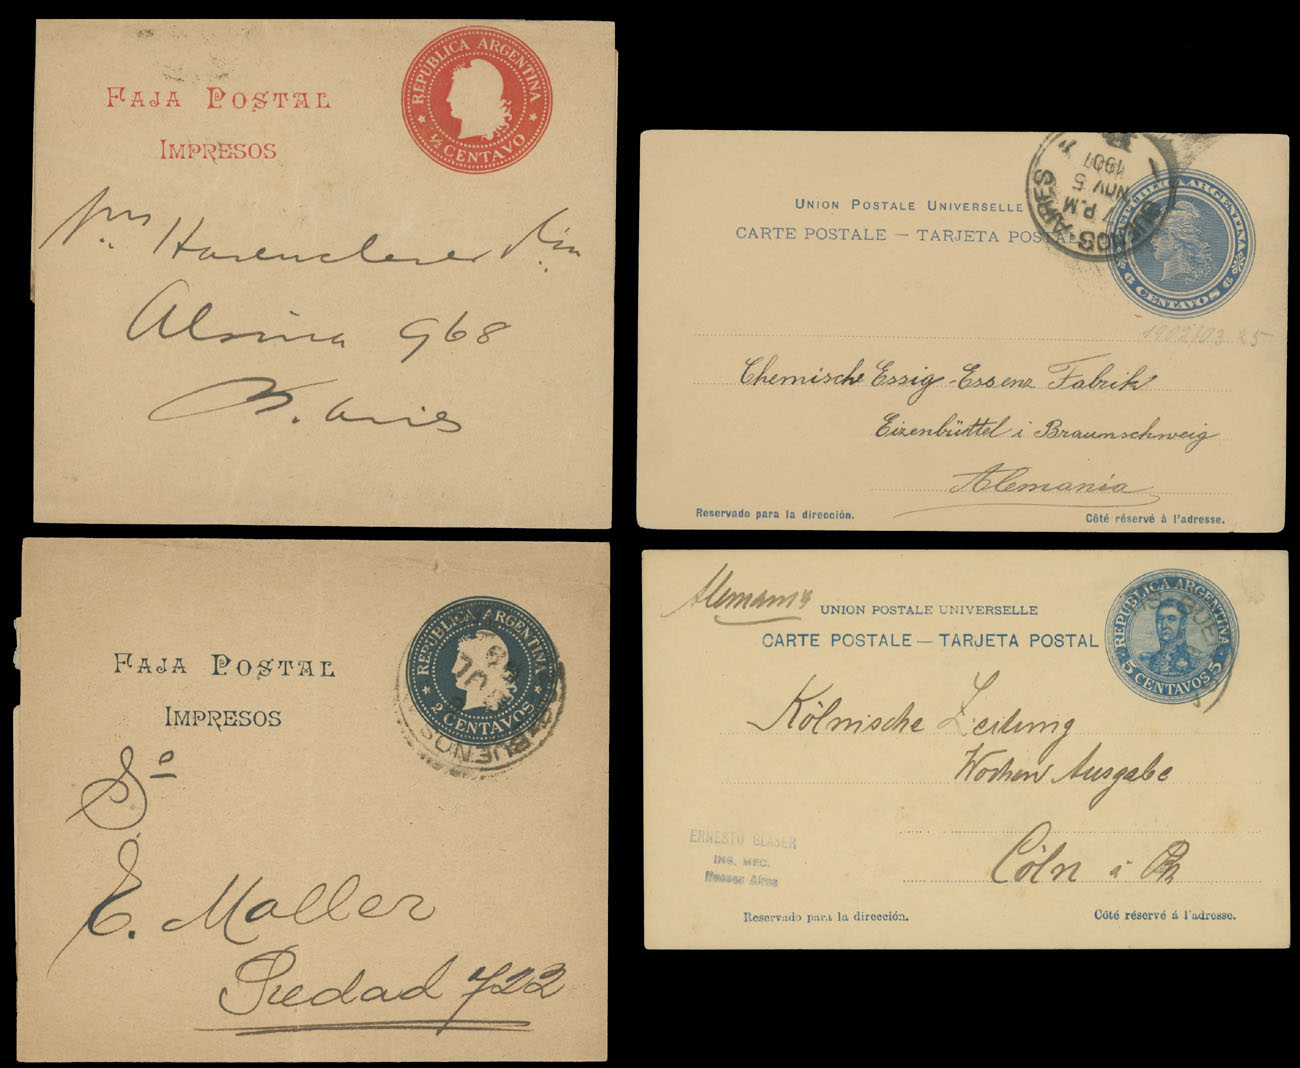 FAJA POSTAL
IMPRESOS
REPUBLICA ARGENTINA
½ CENTAVO
Alsina 968
B. Aires
UNION POSTALE UNIVERSELLE
CARTE POSTALE — TARJETA POSTAL
REPUBLICA ARGENTINA
6 CENTAVOS 6
BUENOS AIRES
7 P.M
NOV 5
1907
1902/03 25
Chemische Essig-Essenz Fabrik
Eizenbüttel i Braunschweig
Alemania
Reservado para la dirección.
Côté réservé à l'adresse.
FAJA POSTAL
IMPRESOS
REPUBLICA ARGENTINA
2 CENTAVOS
BUENOS
JUL
So
E. Maller
Piedad 722
Alemania
UNION POSTALE UNIVERSELLE
CARTE POSTALE — TARJETA POSTAL
REPUBLICA ARGENTINA
5 CENTAVOS 5
BUE
Kölnische Zeitung
Wochen Ausgabe
Cöln a Rh
ERNESTO GLASER
ING. MEC.
Buenos Aires
Reservado para la dirección.
Côté réservé á l'adresse.